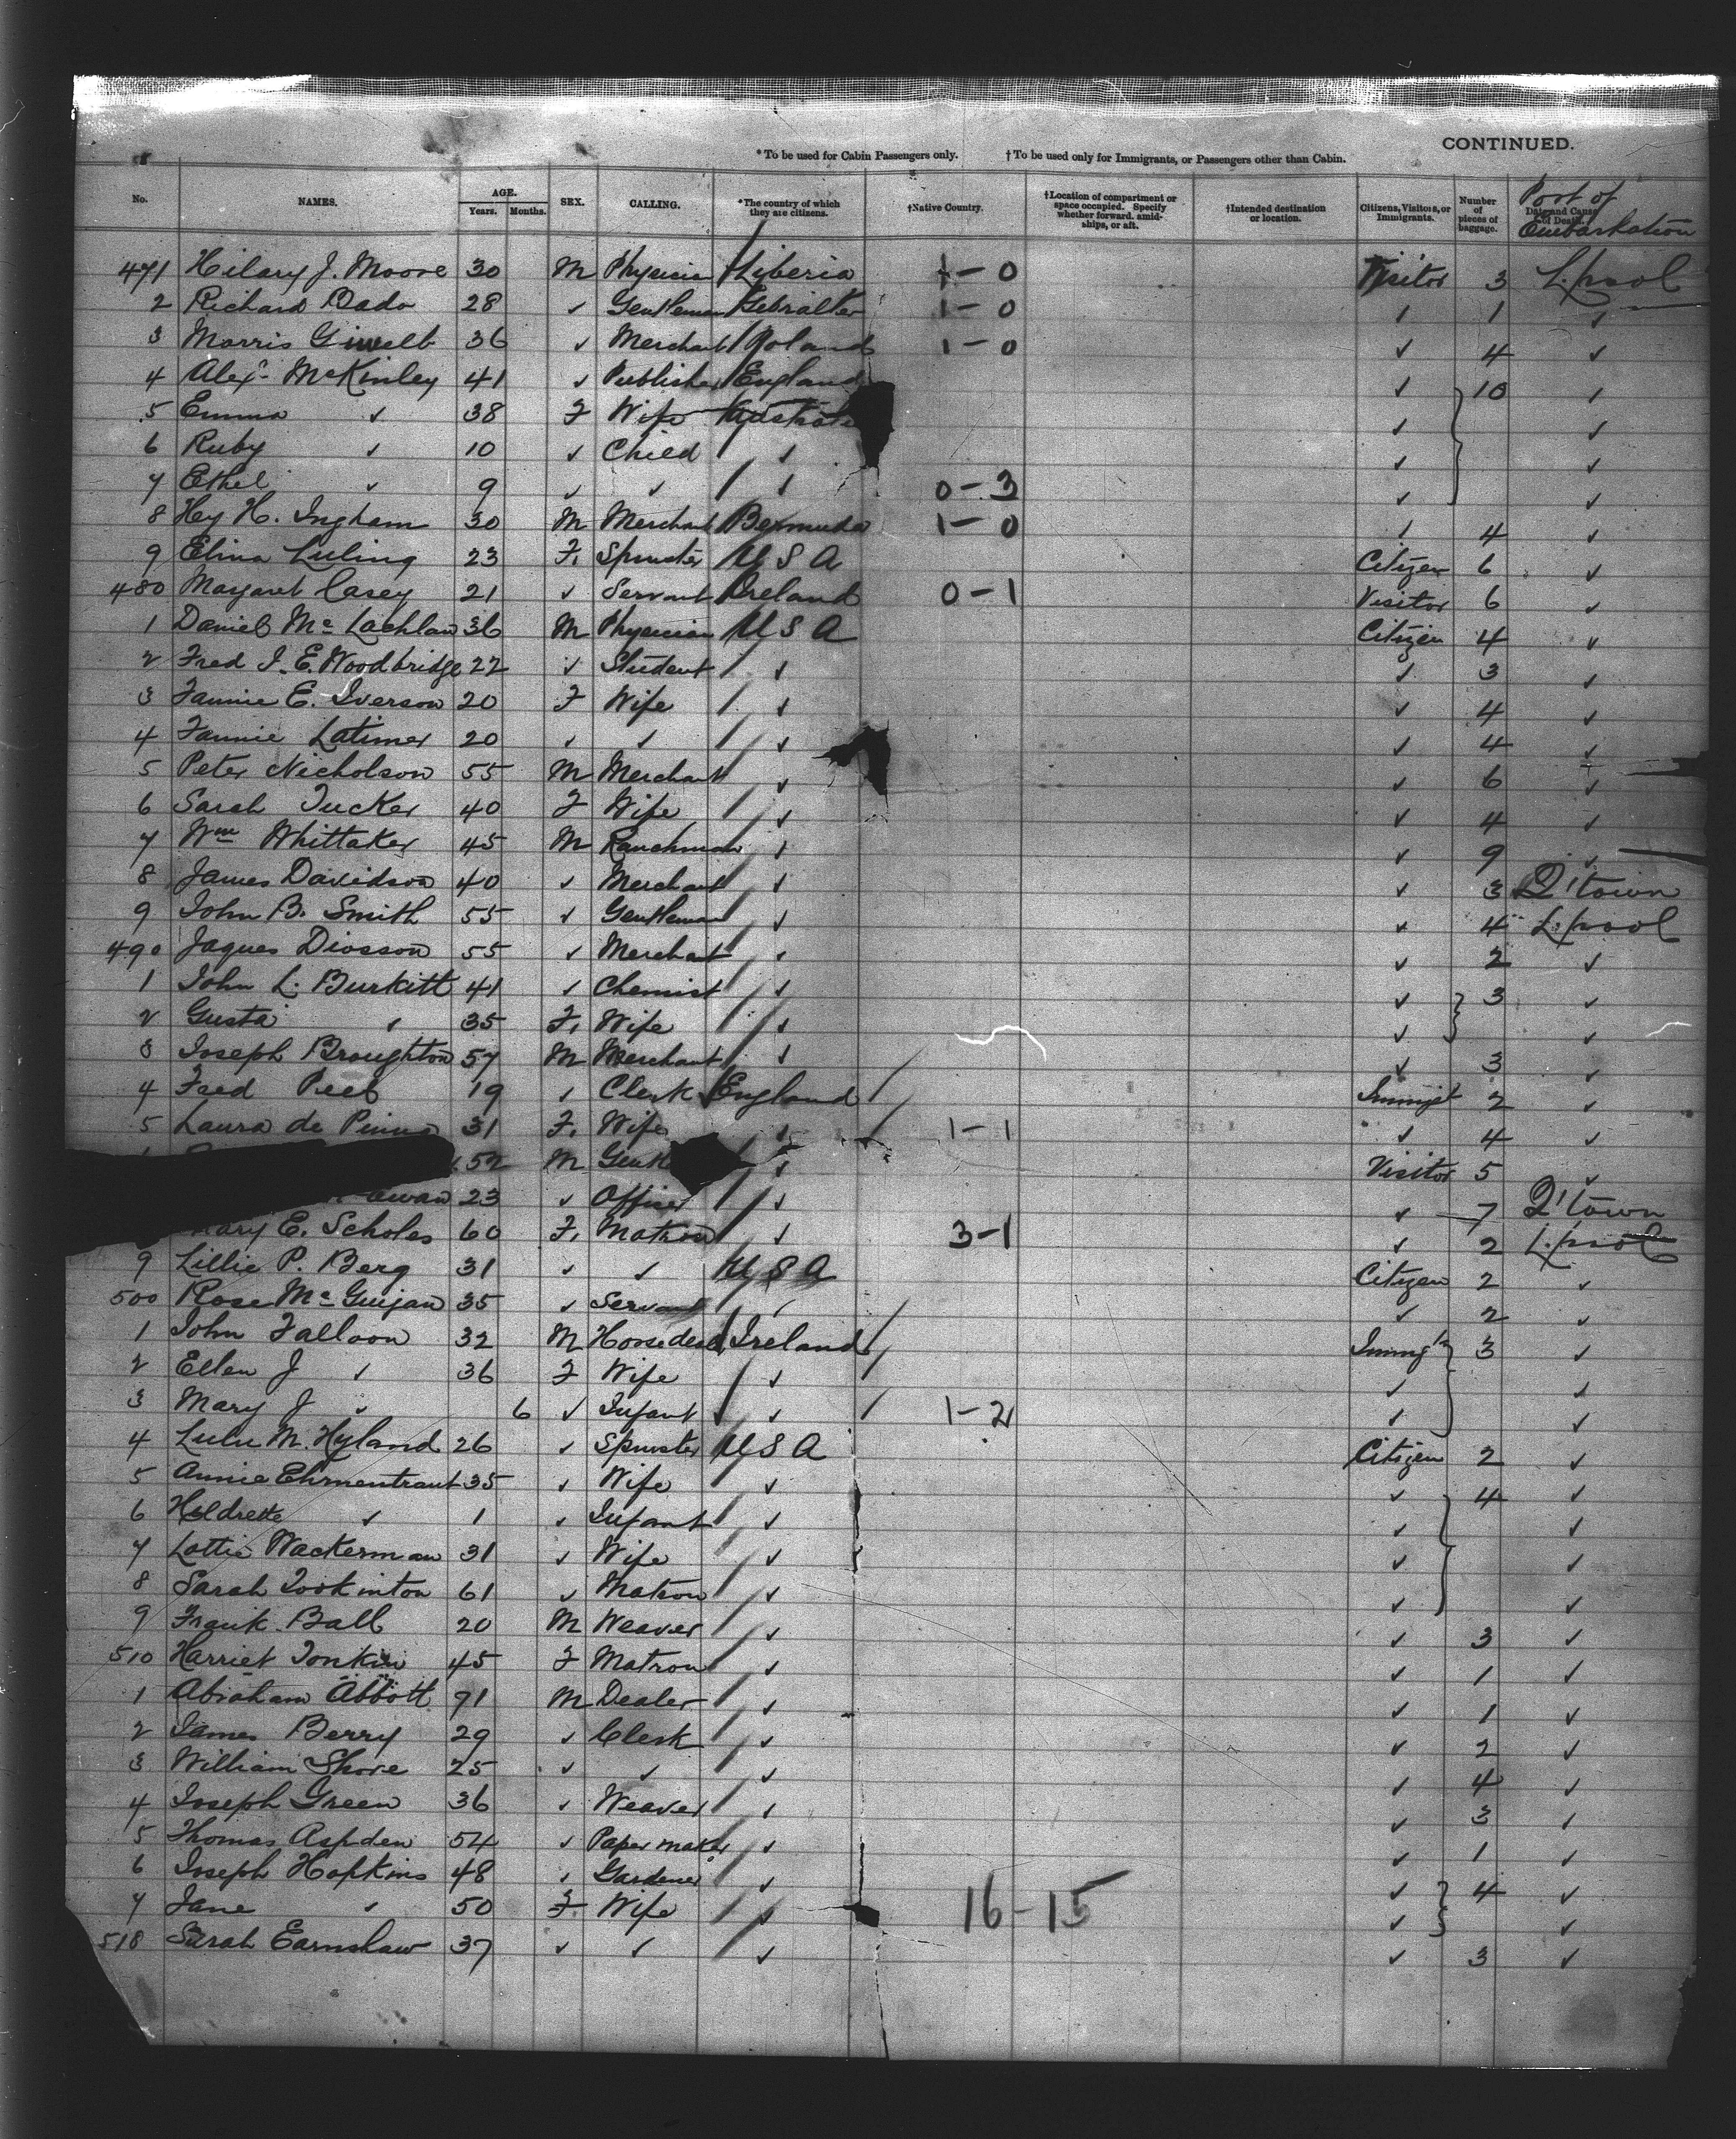 CONTINUED.
* To be used for Cabin Passengers only. † To be used only for Immigrants, or Passengers other than Cabin.
No. NAMES. AGE. Years. Months. SEX. CALLING. *The country of which they are citizens. †Native Country. †Location of compartment or space occupied. Specify whether forward, amidships, or aft. †Intended destination or location. Citizens, Visitors, or Immigrants. Number of pieces of baggage. Date and Cause of Death. Port of Embarkation
471 Hilary J. Moore 30 M Physician Liberia 1-0 Visitor 3 L.pool
2 Richard Dado 28 ✓ Gentleman Gebralter 1-0 ✓ 1 ✓
3 Morris 36 ✓ Merchant Poland 1-0 ✓ 4 ✓
4 Alexr McKinley 41 ✓ Publisher England ✓ 10 ✓
5 Emma ✓ 38 F Wife ✓ ✓
6 Ruby ✓ 10 ✓ Child ✓ ✓ ✓
7 Ethel ✓ 9 ✓ ✓ ✓ 0-3 ✓ ✓
8 Hey H. Ingham 30 M Merchant Bermuda 1-0 ✓ 4 ✓
9 Elina Luling 23 F. Spinster U S A Citizen 6 ✓
480 Margaret Carey 21 ✓ Servant Ireland 0-1 Visitor 6 ✓
1 Daniel Mc Lachlan 36 M Physician U S A Citizen 4 ✓
2 Fred J. E. Woodbridge 22 ✓ Student ✓ ✓ 3 ✓
3 Fannie E. Iverson 20 F Wife ✓ ✓ 4 ✓
4 Fannie Latimer 20 ✓ ✓ ✓ ✓ 4 ✓
5 Peter Nicholson 55 M Merchant ✓ ✓ 6 ✓
6 Sarah Tucker 40 F Wife ✓ ✓ 4 ✓
7 Wm Whittaker 45 M Ranchman ✓ ✓ 9 ✓
8 James Davidson 40 ✓ Merchant ✓ ✓ 3 Q'town
9 John B. Smith 55 ✓ Gentleman ✓ ✓ 4 L.pool
490 Jaques Diosson 55 ✓ Merchant ✓ ✓ 2 ✓
1 John L. Burkitt 41 ✓ Chemist ✓ ✓ 3 ✓
2 Gusta ✓ 35 F. Wife ✓ ✓ ✓
3 Joseph Broughton 57 M Merchant ✓ ✓ 3 ✓
4 Fred Peel 19 ✓ Clerk England Immigt 2 ✓
5 Laura de Pinna 31 F. Wife ✓ 1-1 ✓ 4 ✓
52 M ✓ Visitor 5 ✓
23 ✓ Officer ✓ ✓ 7 Q'town
Mary E. Scholes 60 F. Matron ✓ 3-1 ✓ 2 L.pool
9 Lillie P. Berg 31 ✓ ✓ U S A Citizen 2 ✓
500 Rose Mc Guigan 35 ✓ Servant ✓ ✓ 2 ✓
1 John Falloon 32 M Horsedeal Ireland Immigt 3 ✓
2 Ellen J ✓ 36 F Wife ✓ ✓ ✓
3 Mary J ✓ 6 ✓ Infant ✓ 1-2 ✓ ✓
4 Lulu M. Hyland 26 ✓ Spinster U S A Citizen 2 ✓
5 Annie Ehrmentraut 35 ✓ Wife ✓ ✓ 4 ✓
6 ✓ 1 ✓ Infant ✓ ✓ ✓
7 Lottie Wackerman 31 ✓ Wife ✓ ✓ ✓
8 Sarah Tookinton 61 ✓ Matron ✓ ✓ ✓
9 Frank Ball 20 M Weaver ✓ ✓ 3 ✓
510 Harriet Tonkin 45 F Matron ✓ ✓ 1 ✓
1 Abraham Abbott 71 M Dealer ✓ ✓ 1 ✓
2 James Berry 29 ✓ Clerk ✓ ✓ 2 ✓
3 William Shore 25 ✓ ✓ ✓ ✓ 4 ✓
4 Joseph Green 36 ✓ Weaver ✓ ✓ 3 ✓
5 Thomas Aspden 54 ✓ Paper maker ✓ ✓ 1 ✓
6 Joseph Hopkins 48 ✓ Gardener ✓ ✓ 4 ✓
7 Jane ✓ 50 F Wife ✓ 16-15 ✓ ✓
518 Sarah Earnshaw 37 ✓ ✓ ✓ ✓ 3 ✓